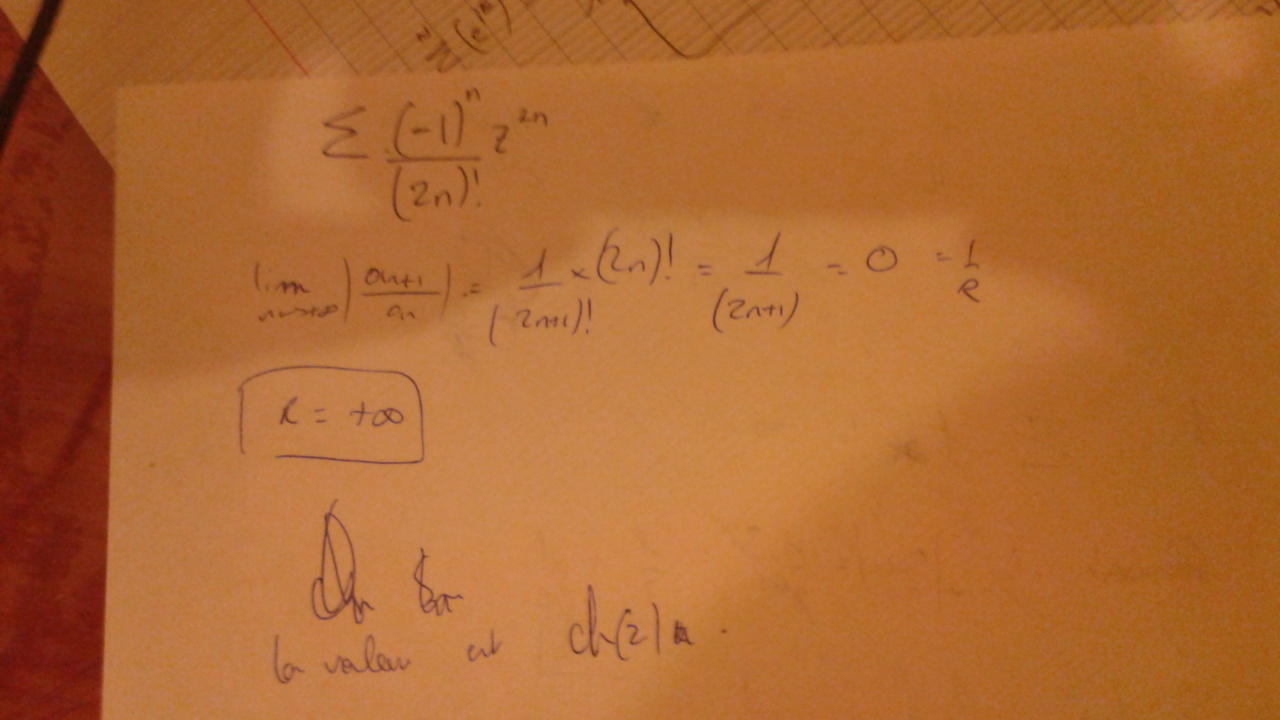 Σ (-1)^n / (2n)! z^{2n}
lim n→+∞ |a_{n+1} / a_n| = 1 / (2n+1)! × (2n)! = 1 / (2n+1) = 0 = 1/R
R = +∞
la valeur est ch(z)